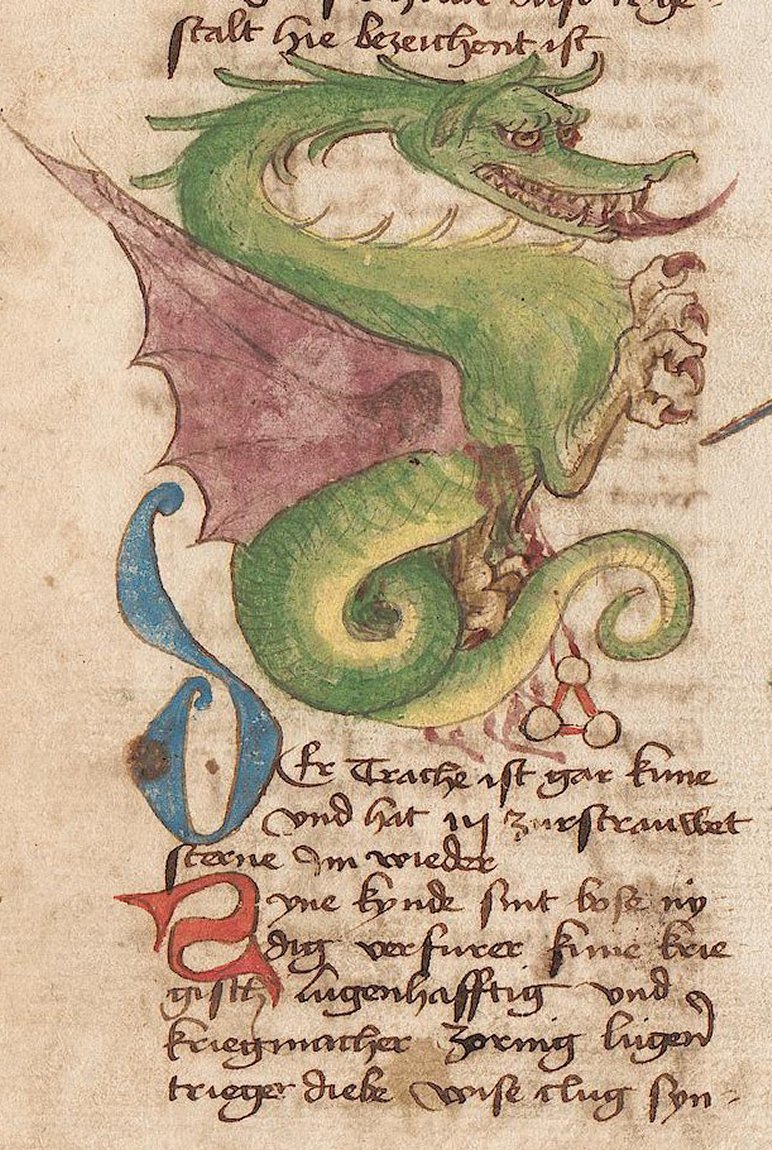 stalt hie bezeichent ist
Der Trache ist gar kune
vnd hat iij zurstrauwet
sterne Jm wieder
Syne kynde sint bose ny
dig verfurer kune krie
gisch lugenhafftig vnd
kriegmacher zornig lugen
trieger diebe wise clug syn-